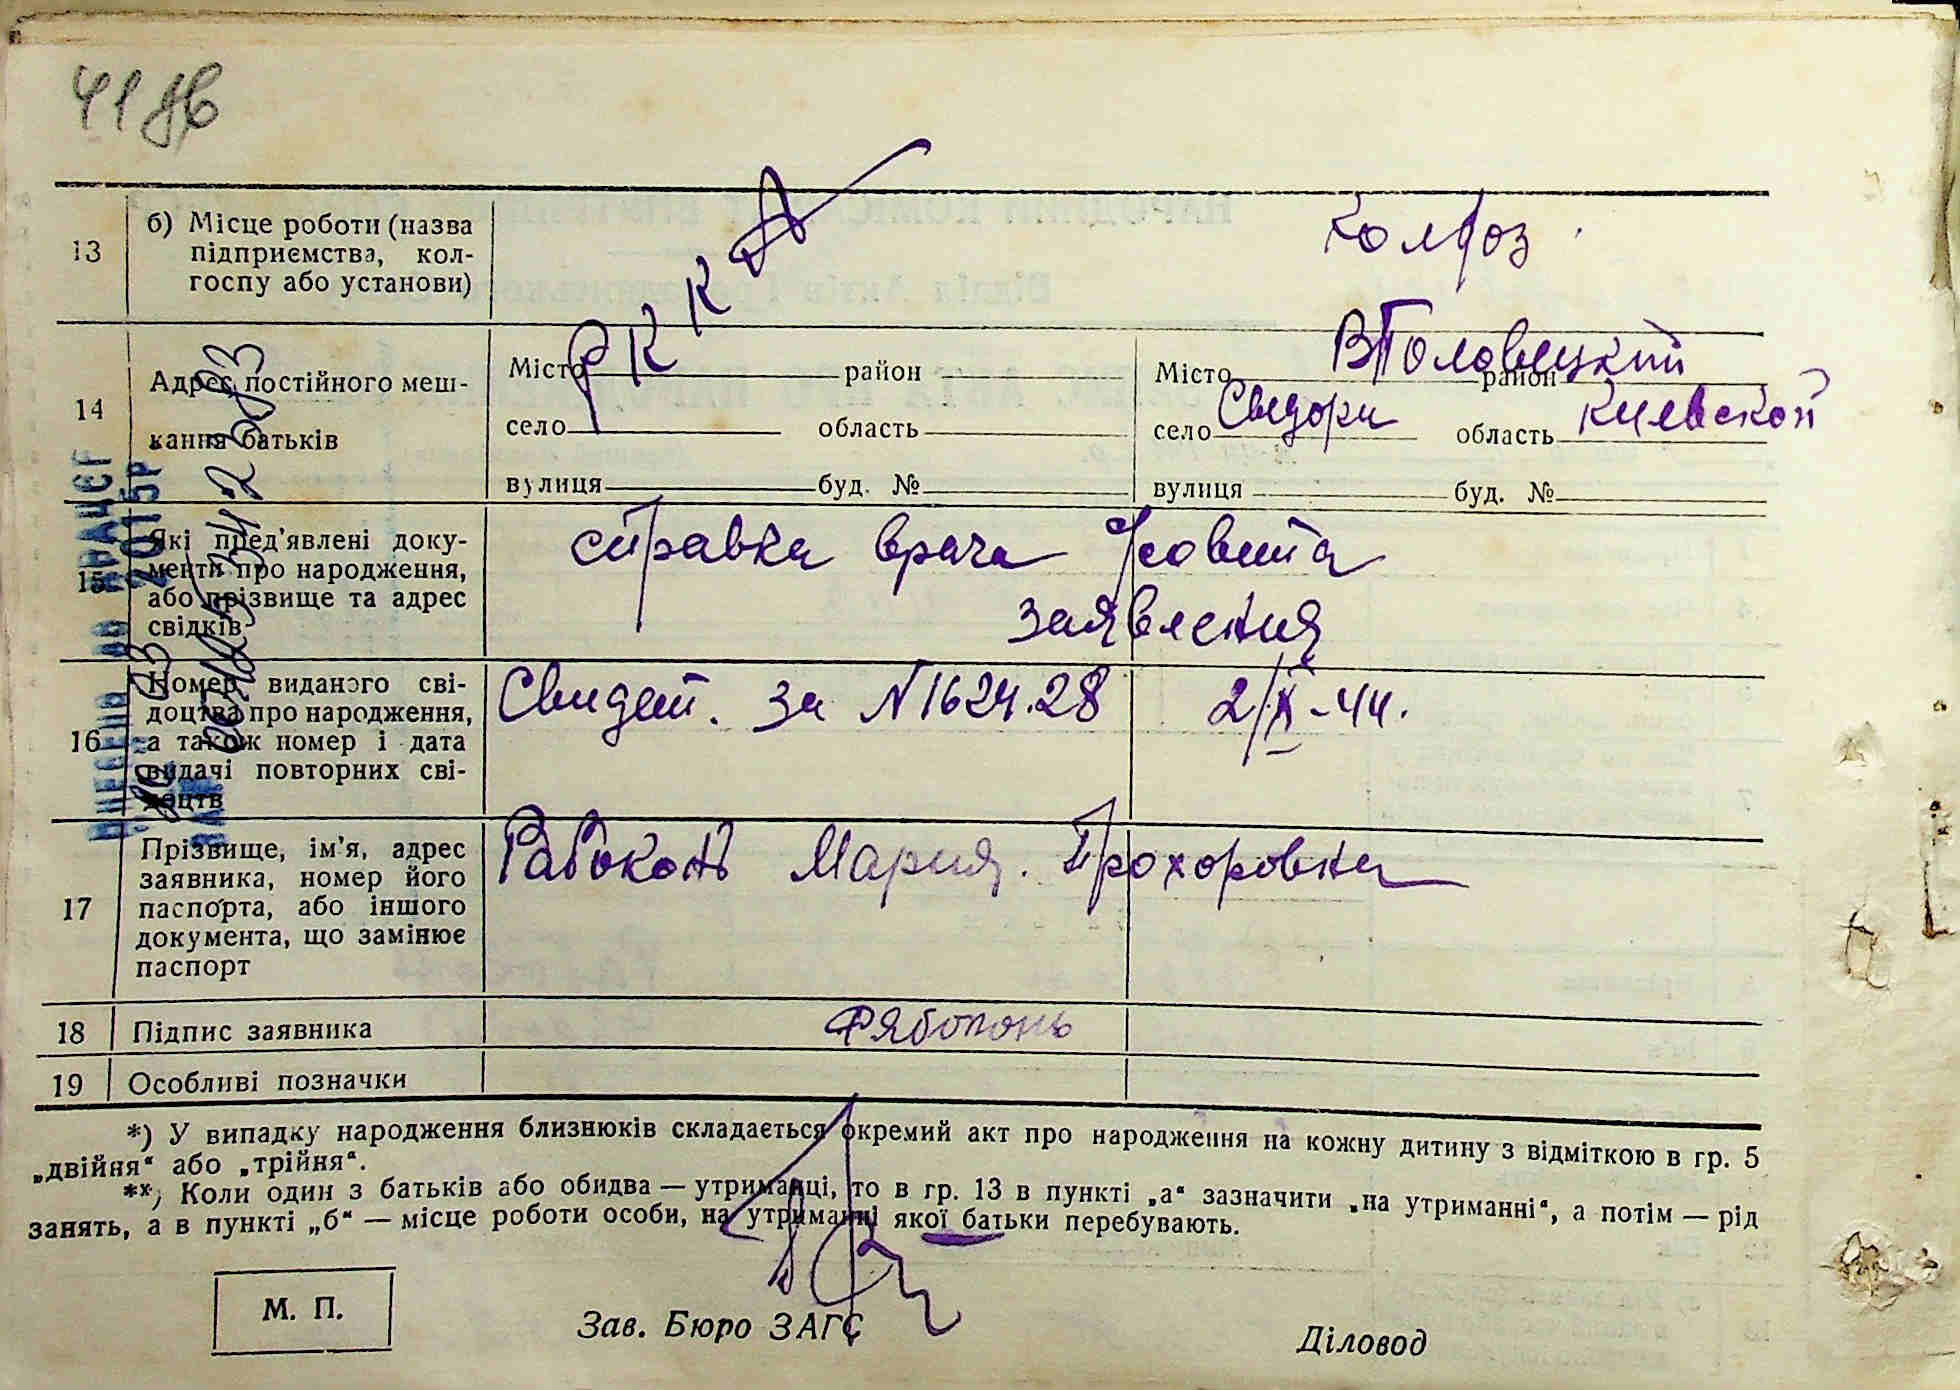 41 зв
13
б) Місце роботи (назва
підприємства, кол-
госпу або установи)
РККА
Колхоз
14
Адрес постійного меш-
кання батьків
Місто район
село область
вулиця буд. №
Місто район В Половецкий
село Сидори область Киевской
вулиця буд. №
15
Які пред'явлені доку-
менти про народження,
або прізвище та адрес
свідків
справка врача
заявления
16
Номер виданого сві-
доцтва про народження,
а також номер і дата
видачі повторних сві-
доцтв
Свидет. за N162428 2/IX-44.
17
Прізвище, ім'я, адрес
заявника, номер його
паспорта, або іншого
документа, що замінює
паспорт
Рабоконь Мария Прохоровна
18 Підпис заявника Рябоконь
19 Особливі позначки
*) У випадку народження близнюків складається окремий акт про народження на кожну дитину з відміткою в гр. 5
„двійня“ або „трійня“.
**) Коли один з батьків або обидва — утриманці, то в гр. 13 в пункті „а“ зазначити „на утриманні“, а потім — рід
занять, а в пункті „б“ — місце роботи особи, на утриманні якої батьки перебувають.
М. П.
Зав. Бюро ЗАГС
Діловод